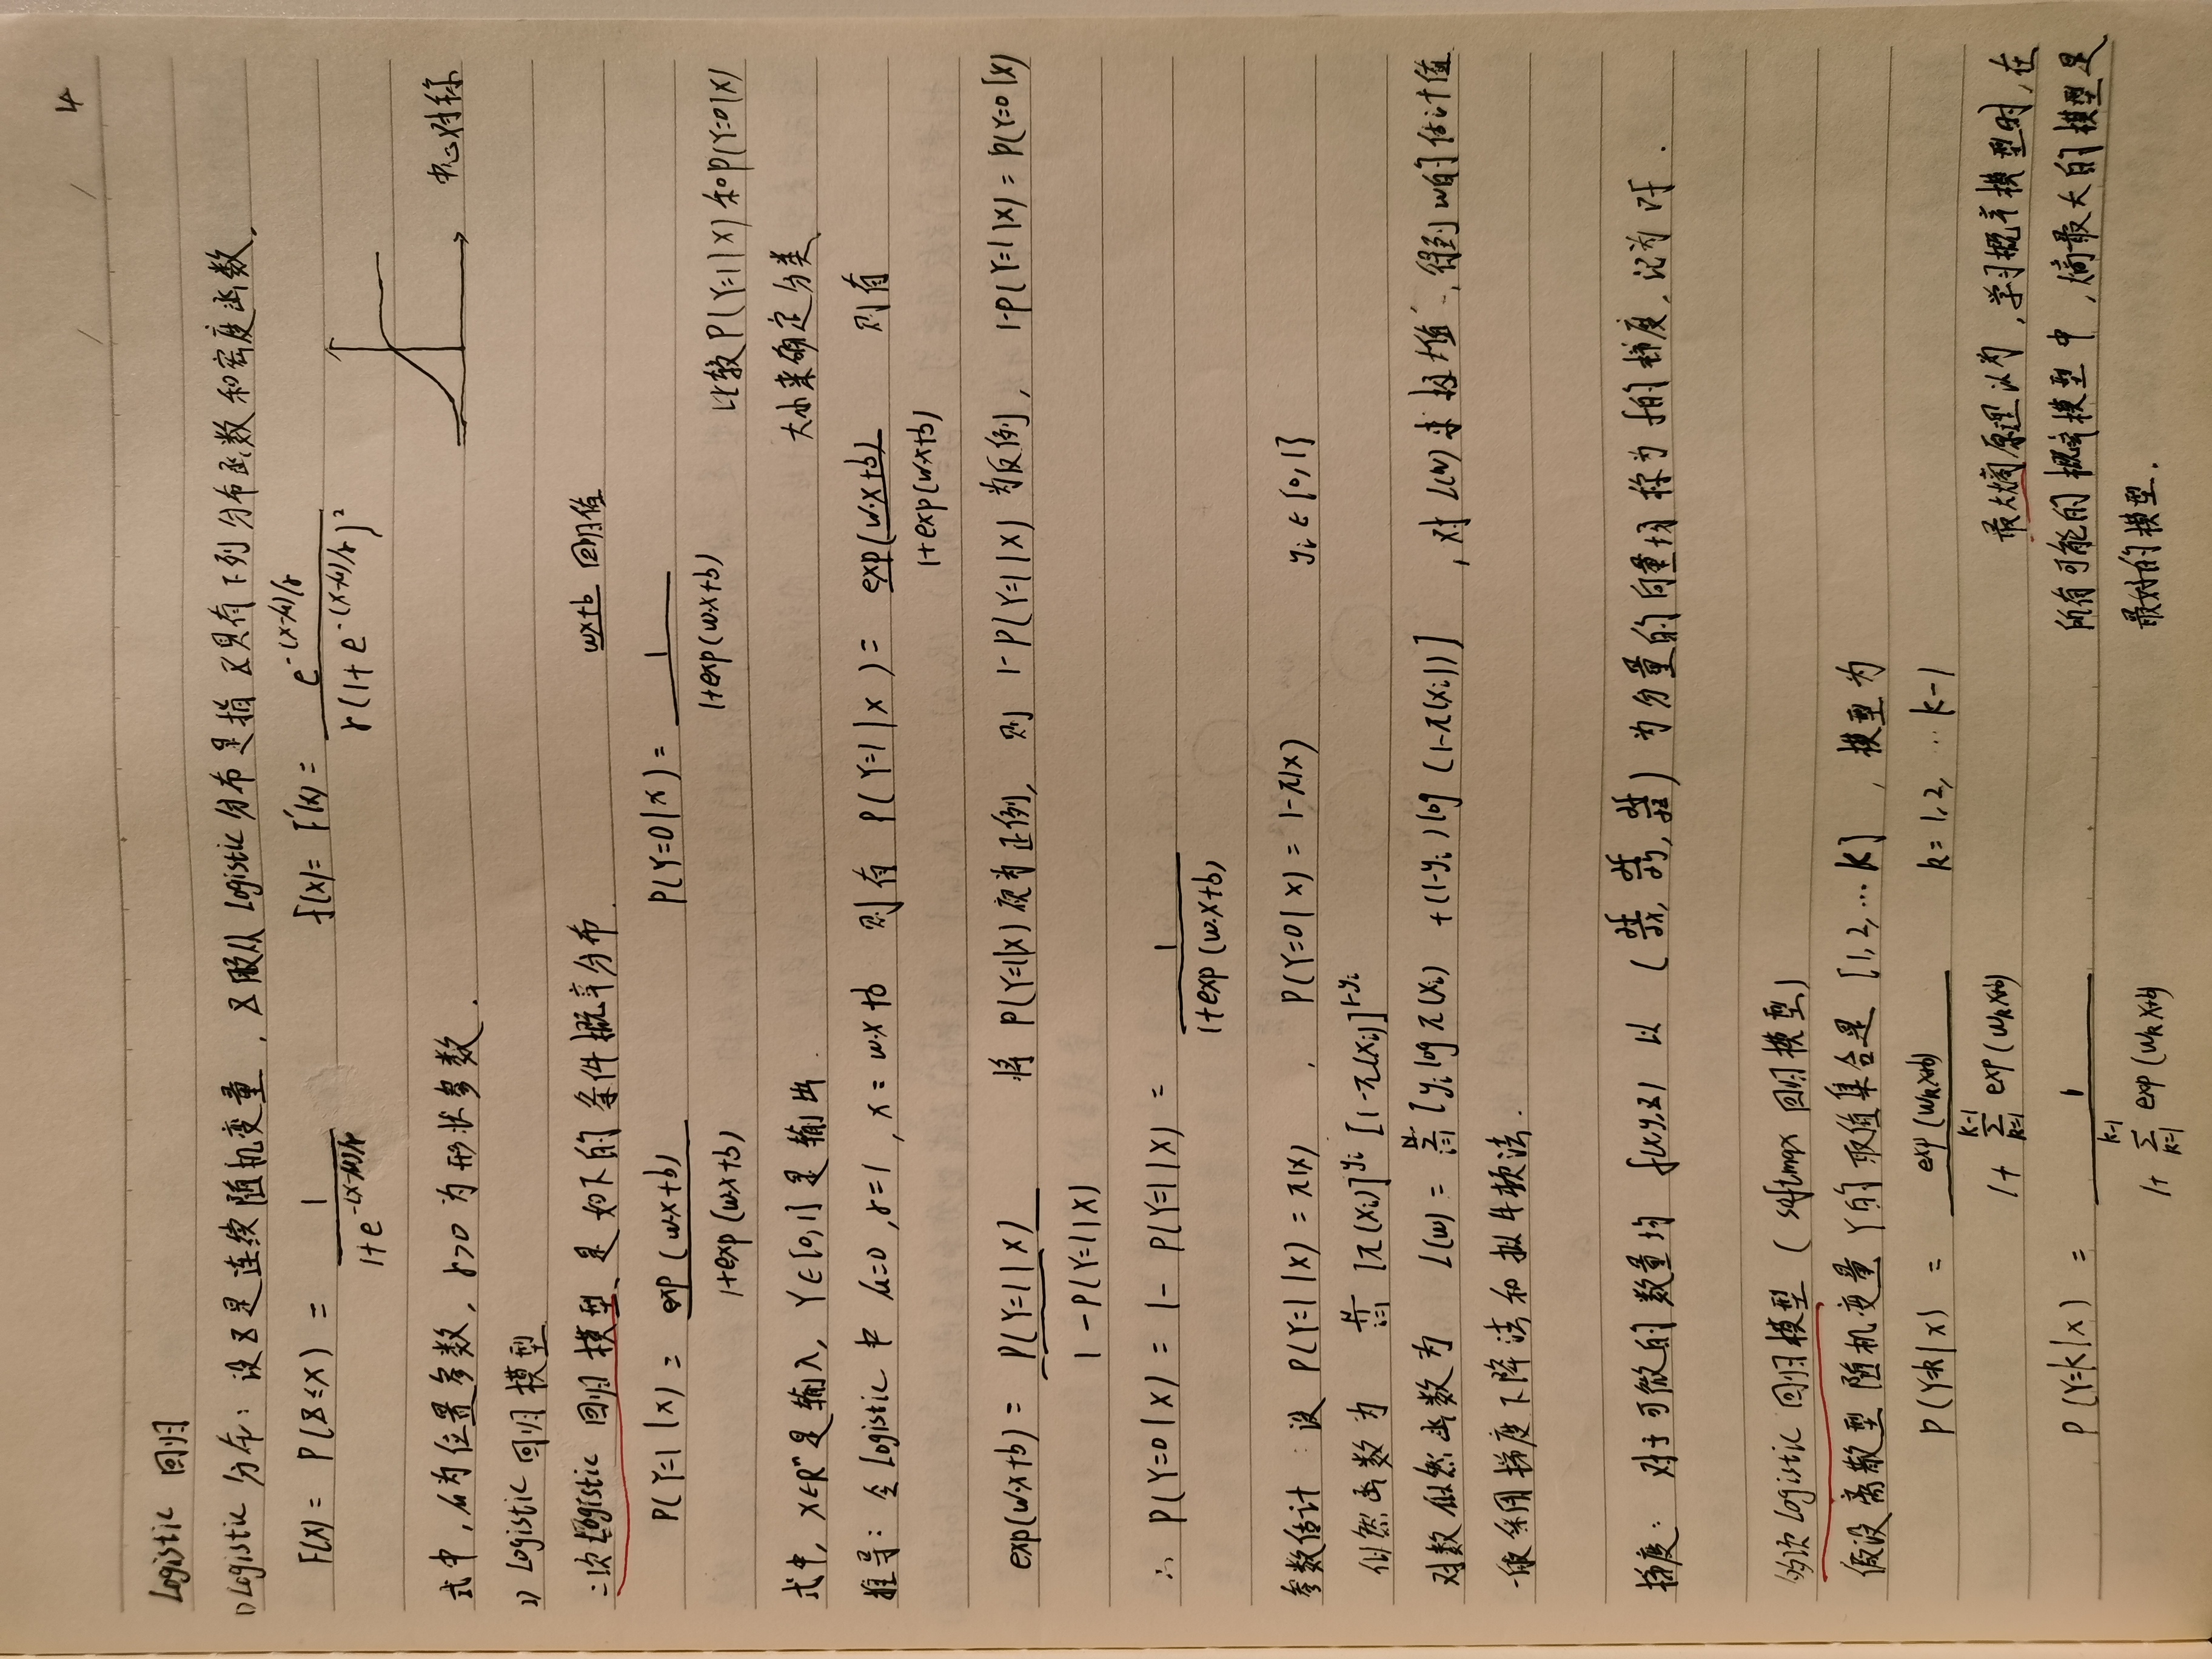 4
Logistic 回归
1) Logistic 分布：设 X 是连续随机变量，X 服从 Logistic 分布是指 X 具有下列分布函数和密度函数，
F(x) = P(X ≤ x) = 1 / (1+e^{-(x-μ)/γ}) f(x) = F'(x) = e^{-(x-μ)/γ} / γ(1+e^{-(x-μ)/γ})²
式中，μ为位置参数，γ>0 为形状参数. 中心对称
2) Logistic 回归模型
二次Logistic 回归模型 是如下的条件概率分布. wx+b 回归值
P(Y=1|x) = exp(w·x+b) / 1+exp(w·x+b) P(Y=0|x) = 1 / 1+exp(w·x+b) 比较 P(Y=1|x) 和 P(Y=0|x)
式中，x∈Rⁿ是输入，Y∈{0,1}是输出. 大小来确定分类
推导：令 Logistic 中 μ=0, γ=1, x = w·x+b 则有 P(Y=1|x) = exp(w·x+b) / 1+exp(w·x+b) 则有
exp(w·x+b) = P(Y=1|x) / 1-P(Y=1|x) 将 P(Y=1|x) 视为正例，则 1-P(Y=1|x) 为反例，1-P(Y=1|x) = P(Y=0|x)
∴ P(Y=0|x) = 1 - P(Y=1|x) = 1 / 1+exp(w·x+b)
参数估计：设 P(Y=1|x) = π(x) , P(Y=0|x) = 1-π(x) yᵢ∈{0,1}
似然函数为 ∏_{i=1}^{N} [π(xᵢ)]^{yᵢ} [1-π(xᵢ)]^{1-yᵢ}
对数似然函数为 L(w) = ∑_{i=1}^{N} [yᵢ log π(xᵢ) + (1-yᵢ) log (1-π(xᵢ))] ，对 L(w) 求极大值，得到 w的估计值
一般采用梯度下降法和拟牛顿法.
梯度：对于可微的数量均 f(x,y,z) 以 (∂f/∂x, ∂f/∂y, ∂f/∂z) 为分量的向量均称为f的梯度，记为 ∇f.
多次 Logistic 回归模型 (softmax 回归模型)
假设离散型随机变量Y的取值集合是 {1,2,…K}，模型为
P(Y=k|x) = exp(wₖx+b) / 1+∑_{k=1}^{K-1} exp(wₖx+b) k=1,2,…K-1
P(Y=K|x) = 1 / 1+∑_{k=1}^{K-1} exp(wₖx+b)
最大熵原理认为，学习概率模型时，在
所有可能的概率模型中，熵最大的模型是
最好的模型.